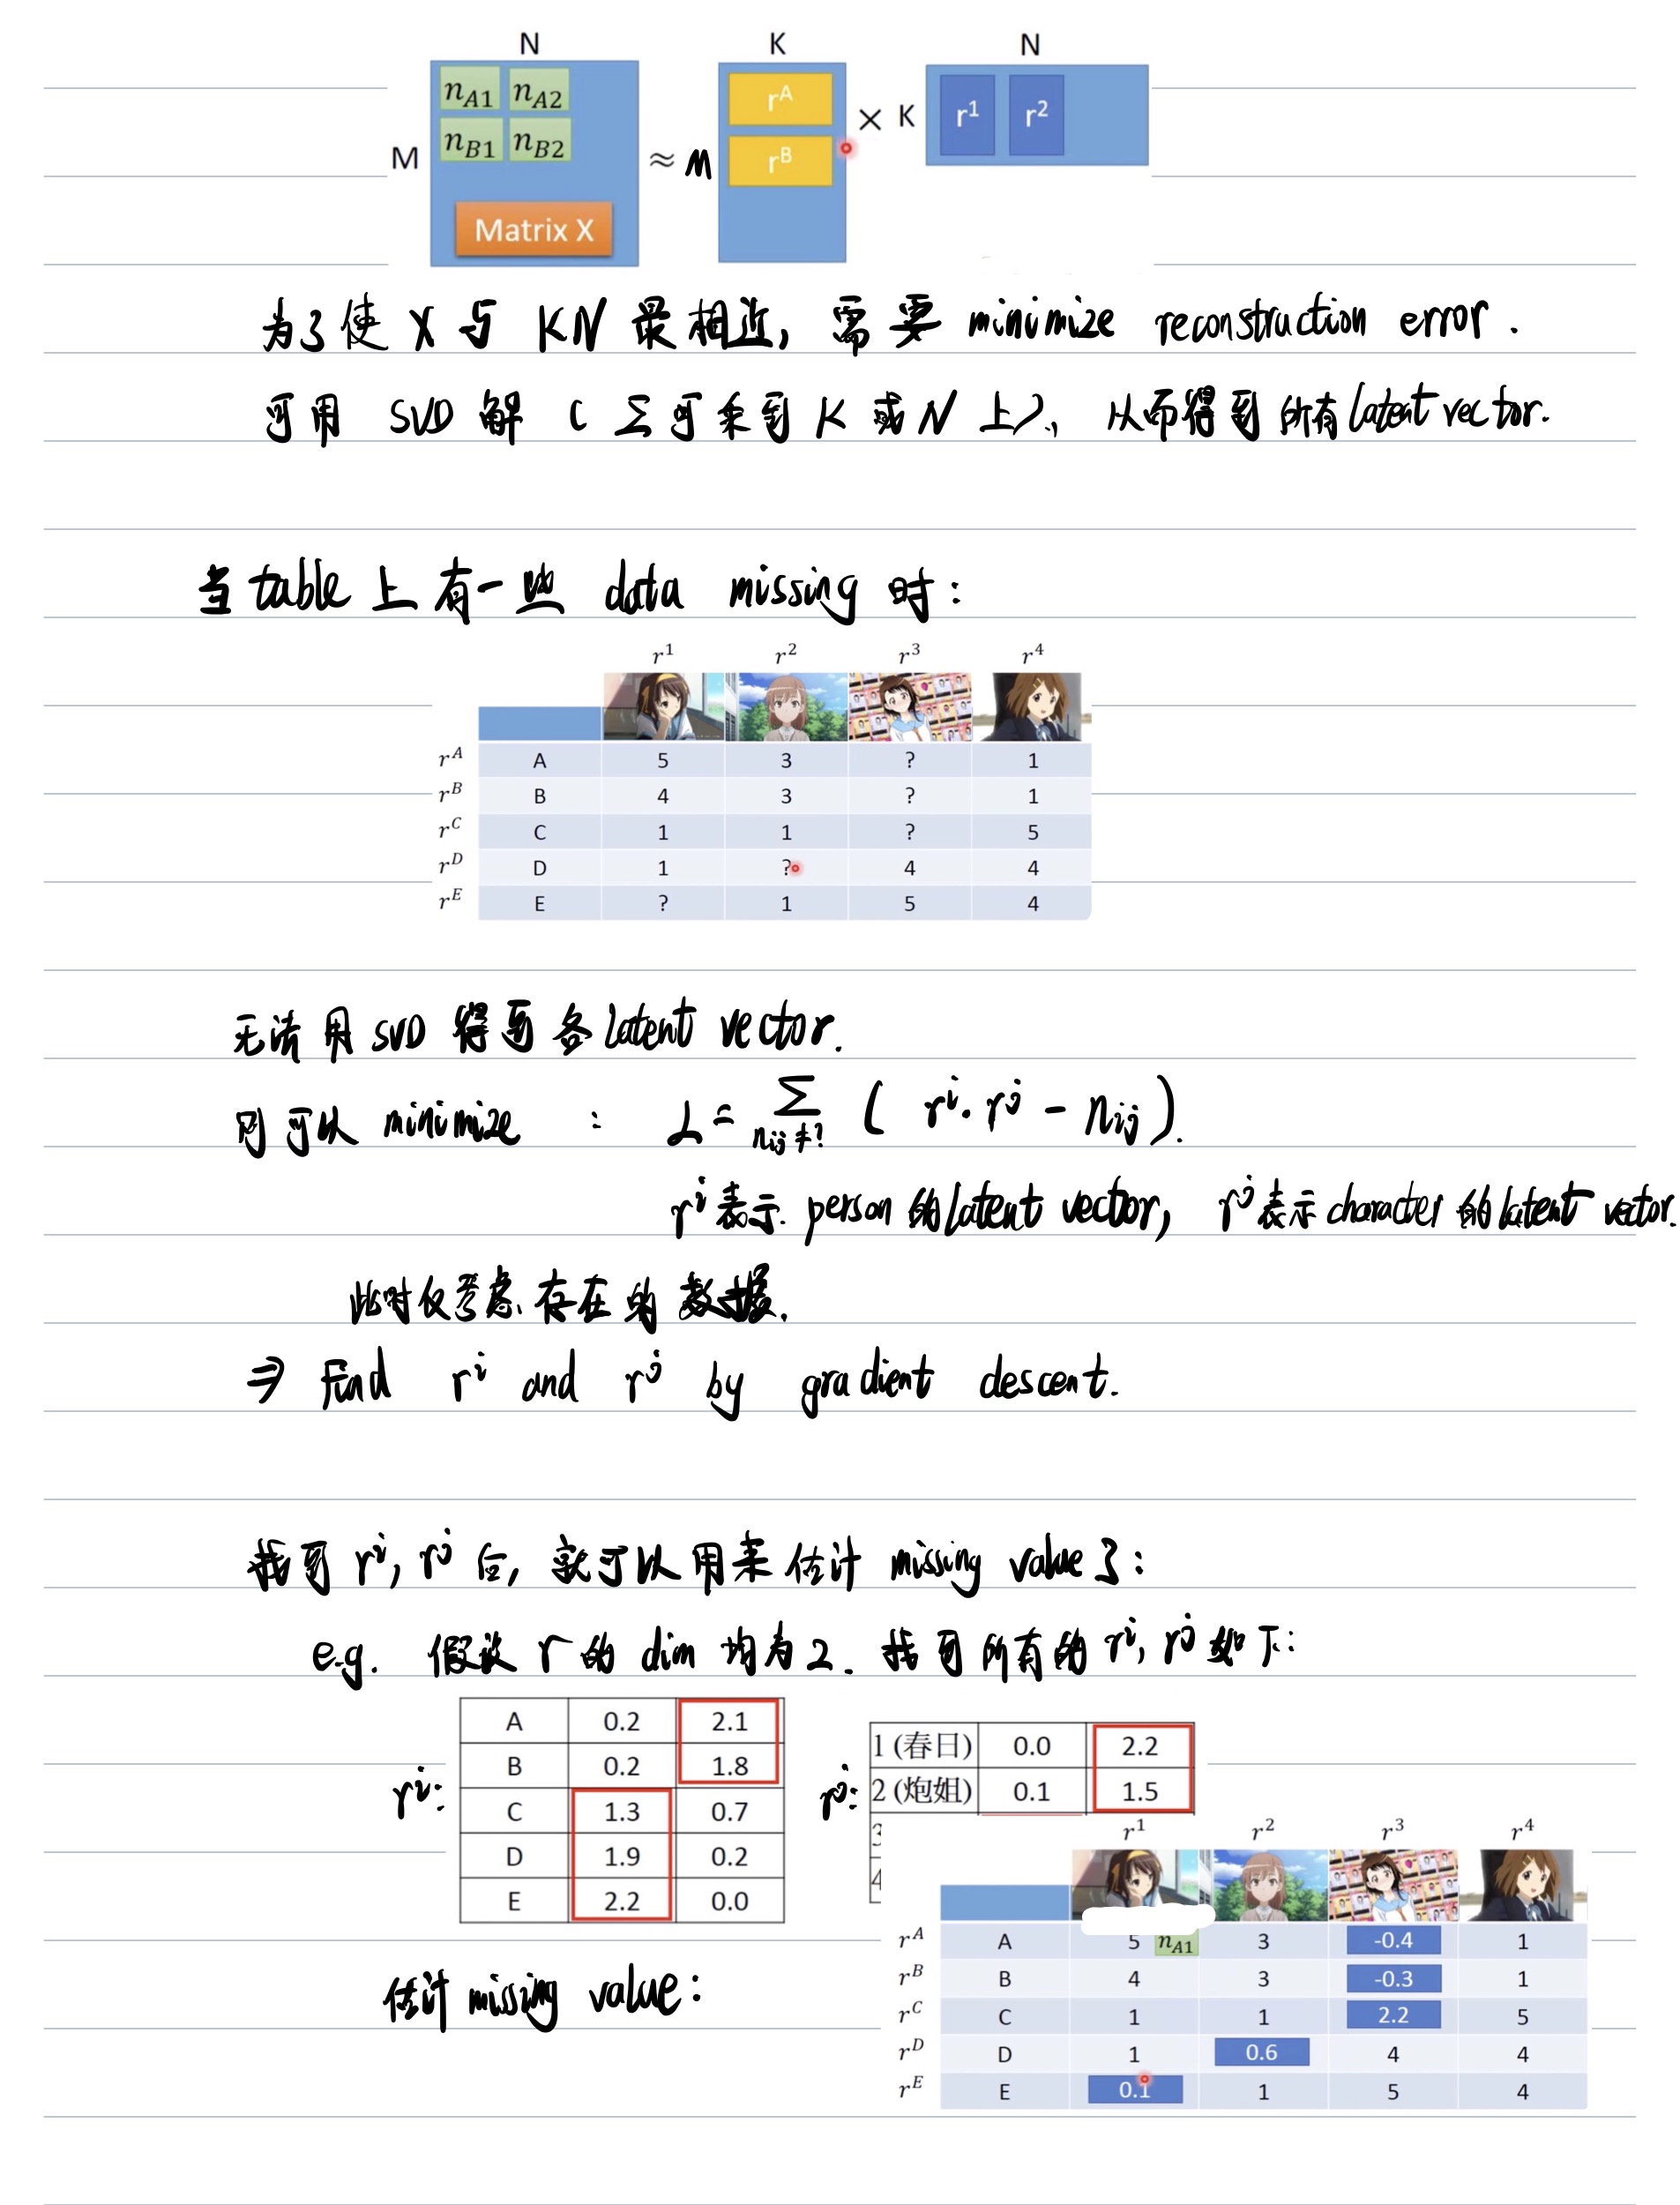 N K N
n_A1 n_A2 r^A × K r^1 r^2
M n_B1 n_B2 ≈ M r^B
Matrix X
为了使 X 与 KN 最相近, 需要 minimize reconstruction error.
可用 SVD 解 (Σ可乘到 K 或 N 上), 从而得到所有 latent vector.
当 table 上有一些 data missing 时:
r^1 r^2 r^3 r^4
r^A A 5 3 ? 1
r^B B 4 3 ? 1
r^C C 1 1 ? 5
r^D D 1 ? 4 4
r^E E ? 1 5 4
无法用 SVD 得到各 latent vector.
则可以 minimize : L = Σ_{n_ij ≠ ?} ( r^i · r^j - n_ij ).
r^i 表示 person 的 latent vector, r^j 表示 character 的 latent vector.
此时仅考虑存在的数据.
⇒ Find r^i and r^j by gradient descent.
找到 r^i, r^j 后, 就可以用来估计 missing value 了:
e.g. 假设 r 的 dim 均为 2. 找到所有的 r^i, r^j 如下:
r^i:
A 0.2 2.1
B 0.2 1.8
C 1.3 0.7
D 1.9 0.2
E 2.2 0.0
r^j:
1 (春日) 0.0 2.2
2 (炮姐) 0.1 1.5
3
4
估计 missing value:
r^1 r^2 r^3 r^4
r^A A 5 n_A1 3 -0.4 1
r^B B 4 3 -0.3 1
r^C C 1 1 2.2 5
r^D D 1 0.6 4 4
r^E E 0.1 1 5 4